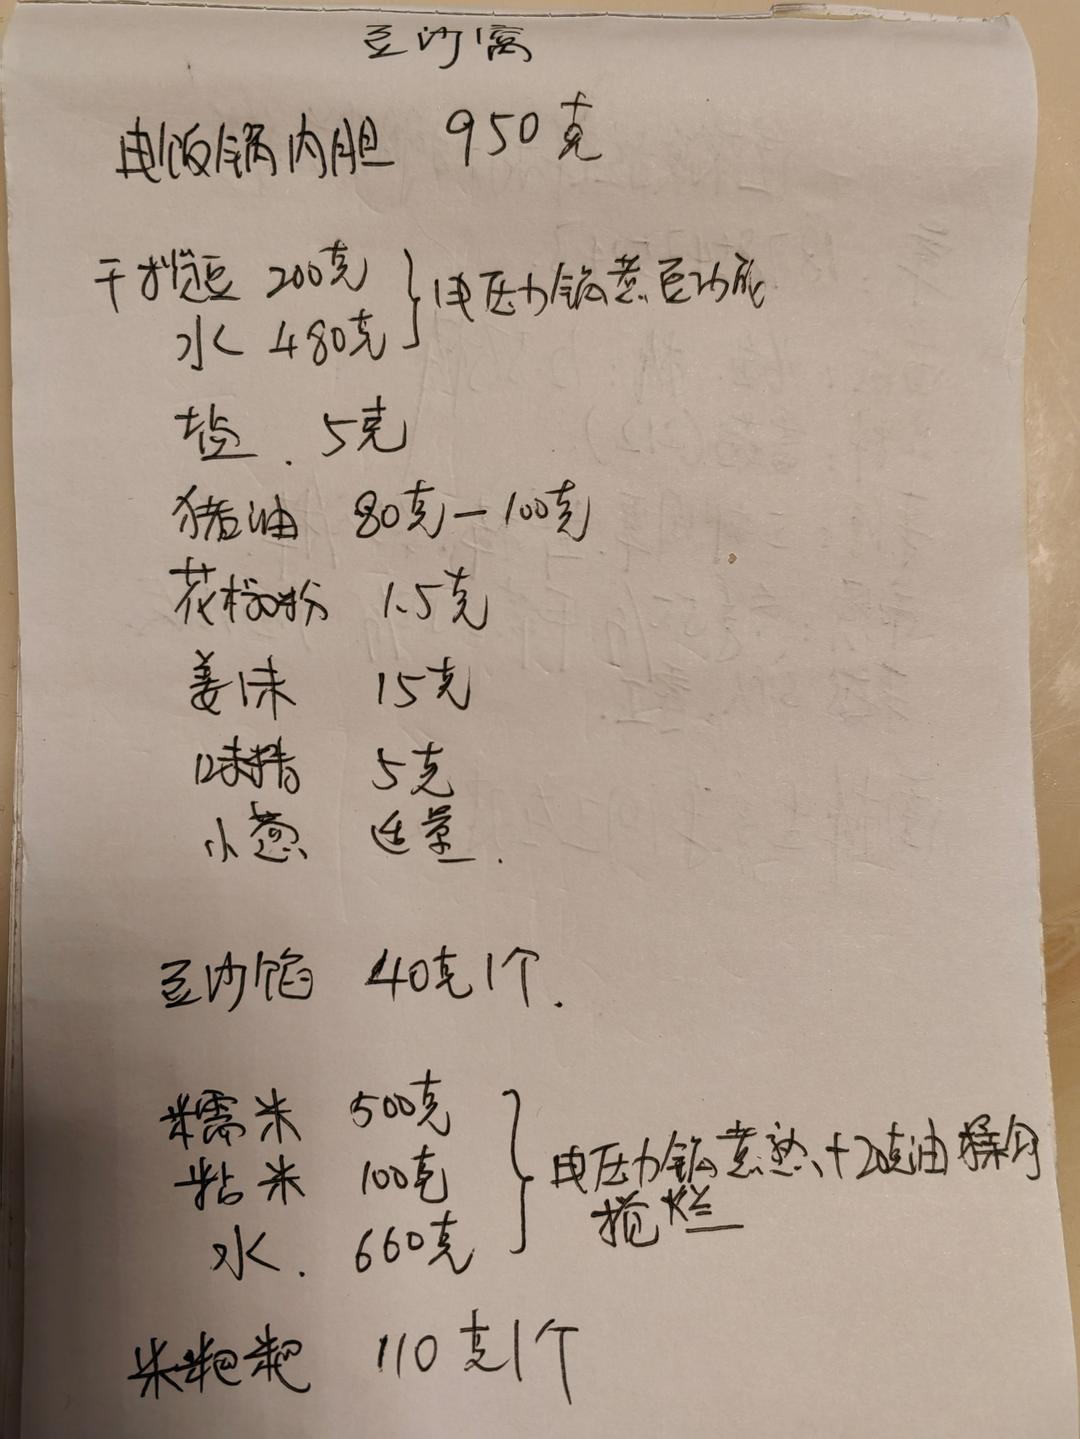 豆沙窝
电饭锅内胆 950克
干豌豆 200克
水 480克
电压力锅煮豆功能
盐. 5克
猪油 80克-100克
花椒粉 1.5克
姜末 15克
味精 5克
小葱 适量.
豆沙馅 40克1个.
糯米 500克
粘米 100克
水. 660克
电压力锅煮熟+20克油揉匀
捣烂
米粑粑 110克1个